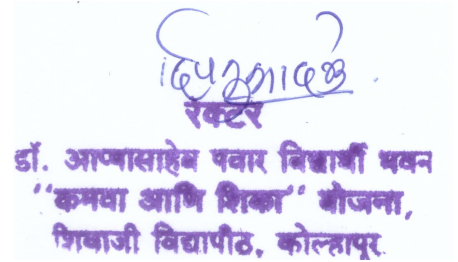 रेक्टर
डॉ. आप्पासाहेब पवार विद्यार्थी भवन
"कमवा आणि शिका" योजना,
शिवाजी विद्यापीठ, कोल्हापूर